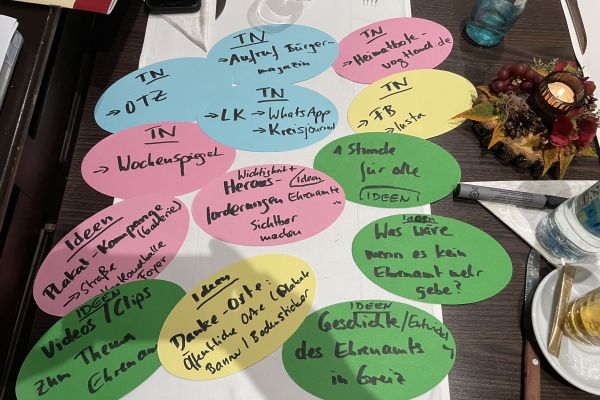 TN
→ Aufruf Bürger-
magazin
TN
→ Heimatbote-
vogtland.de
TN
→ OTZ
TN
→ LK → WhatsApp
→ Kreisjournal
TN
→ FB
→ Insta
TN
→ Wochenspiegel
Wichtigkeit +
Heraus- Ideen
forderungen Ehrenamt
sichtbar
machen
1 Stunde
für alle
IDEEN
Ideen
Plakat-Kampagne
(Galerie)
→ Straße
Foyer
Ideen
Was wäre
wenn es kein
Ehrenamt mehr
gäbe?
IDEEN
Videos / Clips
zum Thema
Ehrenamt
Ideen
Danke-Orte:
Öffentliche Orte (Plakate
Banner / Bodensticker
IDEEN
Geschichte /
des Ehrenamts
in Greiz